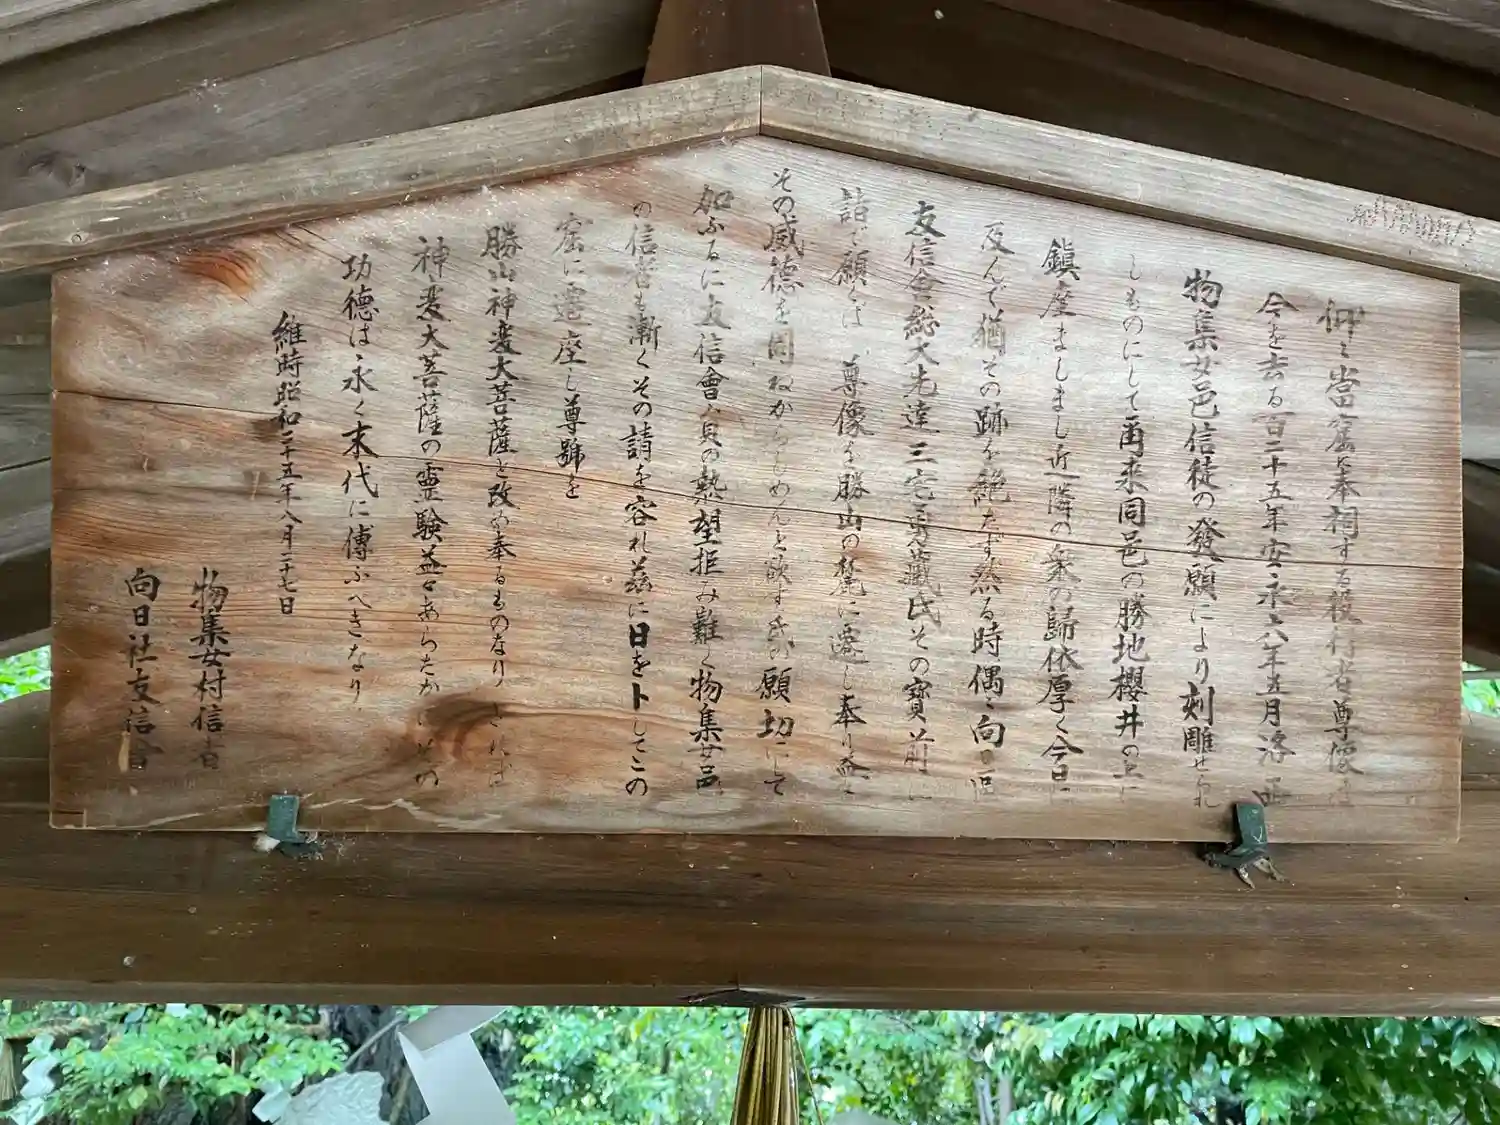 仰々當窟に奉祠する役行者尊像は
今を去る百二十五年安永八年五月洛西
物集女邑信徒の發願により刻雕せられ
しものにして爾来同邑の勝地櫻井の上に
鎮座ましまし近隣の衆の歸依厚く今日に
及んで猶その跡を絶たず然る時偶々向日町
友信會総大先達三宅勇藏氏その寶前に
詣で願くば尊像を勝山の麓に遷し奉り益々
その威徳を同ねからしめんと欲す氏の願切にして
加ふるに友信會々員の熱望拒み難く物集女邑
の信者も漸くその請を容れ茲に日を卜してこの
窟に遷座し尊號を
勝山神変大菩薩と改め奉るものなり されば
神変大菩薩の霊験益々あらたかにその
功徳は永く末代に傳ふべきなり
維時昭和二十五年八月二十七日
物集女村信者
向日社友信會